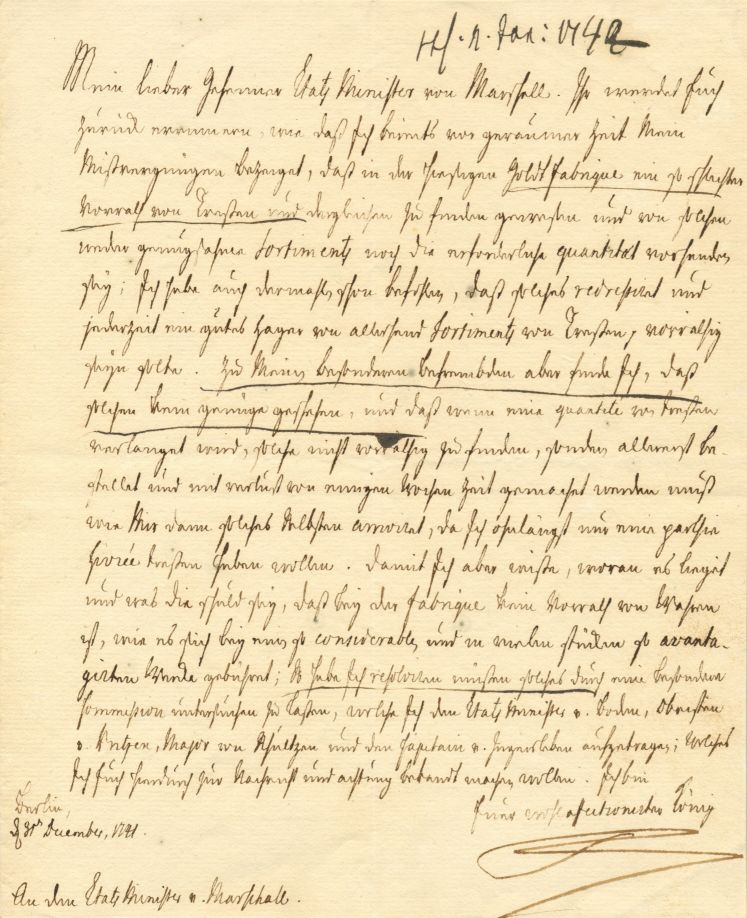 2. Jan: 1742
Mein lieber Geheimer Etats Minister von Marschall. Ihr werdet Euch
zurück erinnern, wie daß Ich bereits vor geraumer Zeit Mein
Mißvergnügen bezeiget, daß in der hiesigen Goldt Fabrique ein so schlechter
Vorrath von Treßen und dergleichen zu finden gewesen und von solchen
weder genugsahme Sortiments noch die erforderliche quantität vorhanden
sey; Ich habe auch dermahls schon befohlen, daß solches redressiret und
jederzeit ein gutes Lager von allerhand Sortiments von Treßen, vorräthig
seyn solte. Zu Meinem besonderen Befrembden aber finde Ich, daß
solchen kein genüge geschehen, und daß wenn eine quantité von Treßen
verlanget wird, solche nicht vorräthig zu finden, sondern allererst be-
stellet und mit verlust von einigen Wochen Zeit gemachet werden muß
wie Mir dann solches Selbsten arriviret, da Ich ohnlängst nur eine parthie
Livrée Treßen haben wollen. Damit Ich aber wiße, woran es lieget
und was die schuld sey, daß bey der Fabrique kein Vorrath von Wahren
ist, wie es sich bey einem so considerablen und in vielen stücken so avanta-
girten Werke gebühret; So habe Ich resolviren müßen solches durch eine besondere
Commission untersuchen zu laßen, welche Ich dem Etats Minister v. Boden, Obristen
v. Major von und dem Capitain v. Ingersleben aufgetragen; Welches
Ich Euch hierdurch zur Nachricht und achtung bekandt machen wollen. Ich bin
Euer wohlaffectionirter König
Berlin,
d. 31ten December, 1741.
An den Etats Minister v. Marschall.